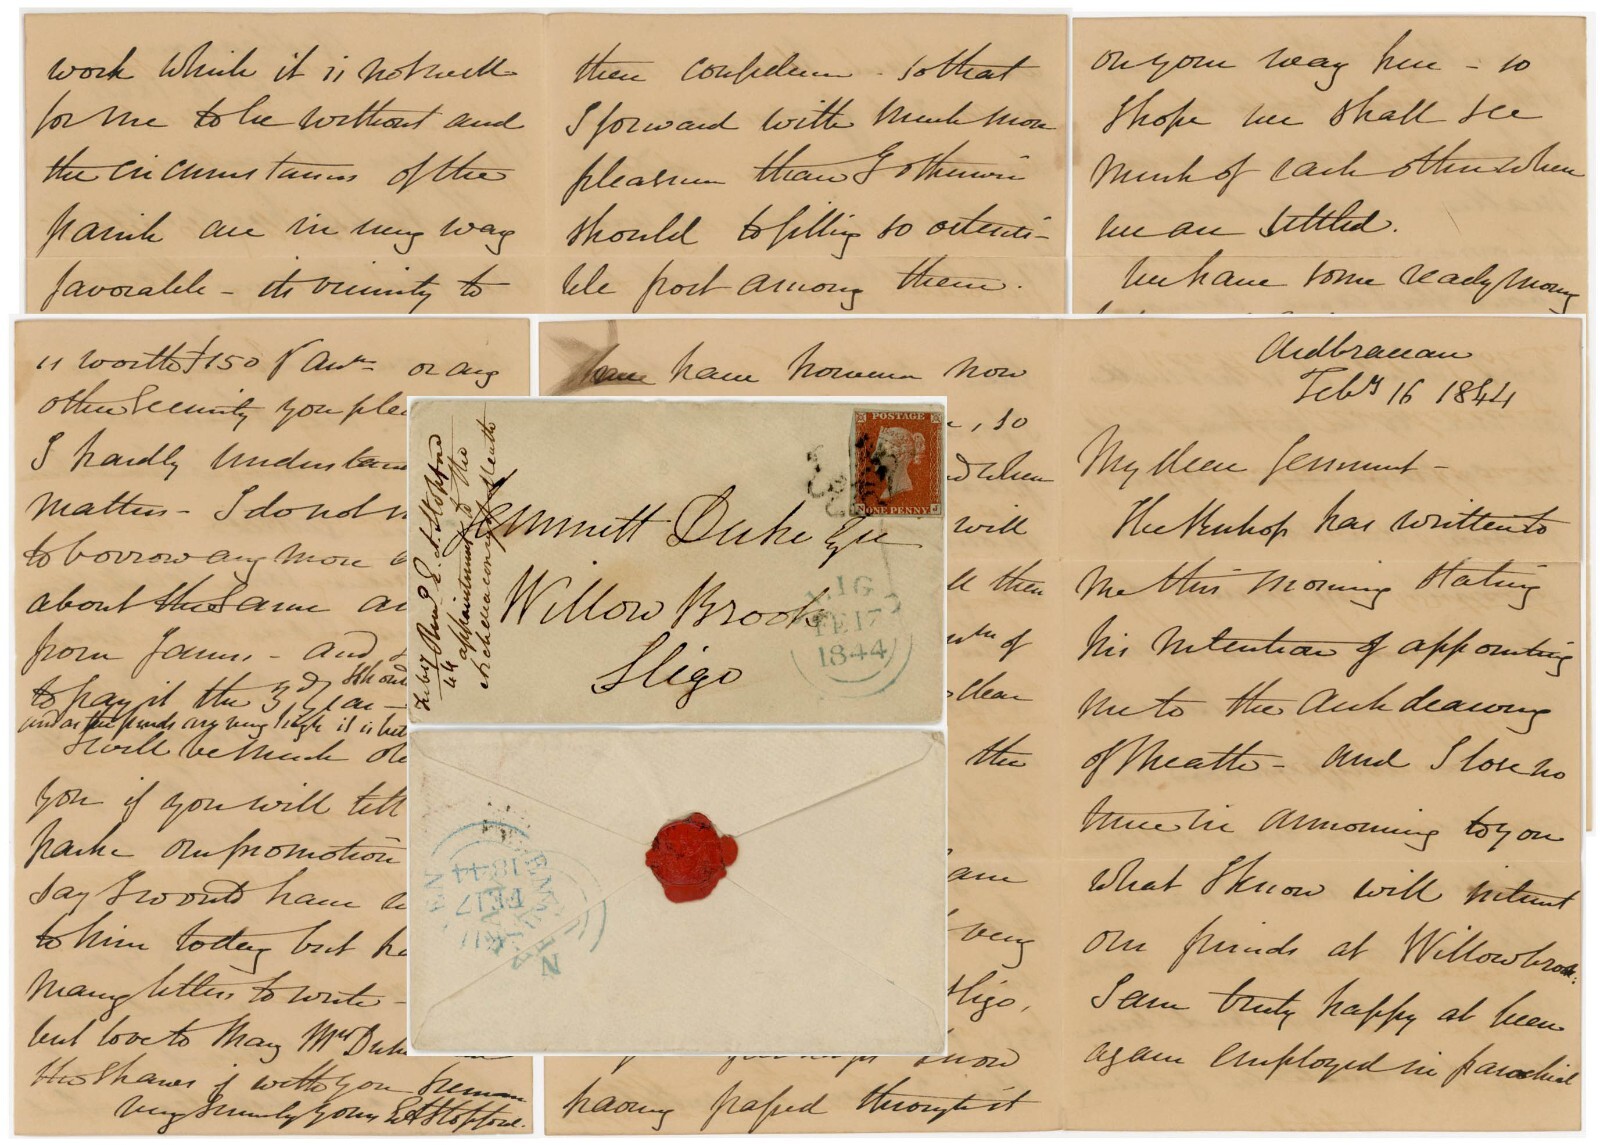 Ardbraccan
Feby 16 1844
My dear Jemmett -
The Bishop has written to
me this morning stating
his intention of appointing
me to the Archdeaconry
of Meath - and I lose no
time in announcing to you
what I know will interest
our friends at Willowbrook:
I am truly happy at been
again employed in parochial
work which it is not well
for me to be without and
the circumstances of the
parish are in very way
favorable - its vicinity to
then confidence - so that
I forward with much more
pleasure than I otherwise
should to filling so ostensi-
ble post among them.
on your way here - so
I hope we shall see
much of each other when
we are settled.
We have some ready money
have however now
, so
and when
will
then
of
dear
the
am
very
Sligo,
know
having passed through it
is worth £150 P Ann or any
other Security you
I hardly understand
matters - I do not
to borrow any more
about the same
from James - and
to pay it the 3d year - should
and as the funds are very high it is
I will be much
you if you will tell
Parke our promotion
say I would have
to him today but
many letters to write -
but love to Mary Mrs Duke
the Shares if with you
very sincerely yours E A Stopford.
POSTAGE
ONE PENNY
J
Jemmett Duke Esqr
Willow Brook
Sligo
Feby
44 Revd E. A. Stopford
appointment to the
Archdeaconry of Meath
FE 17
1844
1844
FE 17
NAVAN